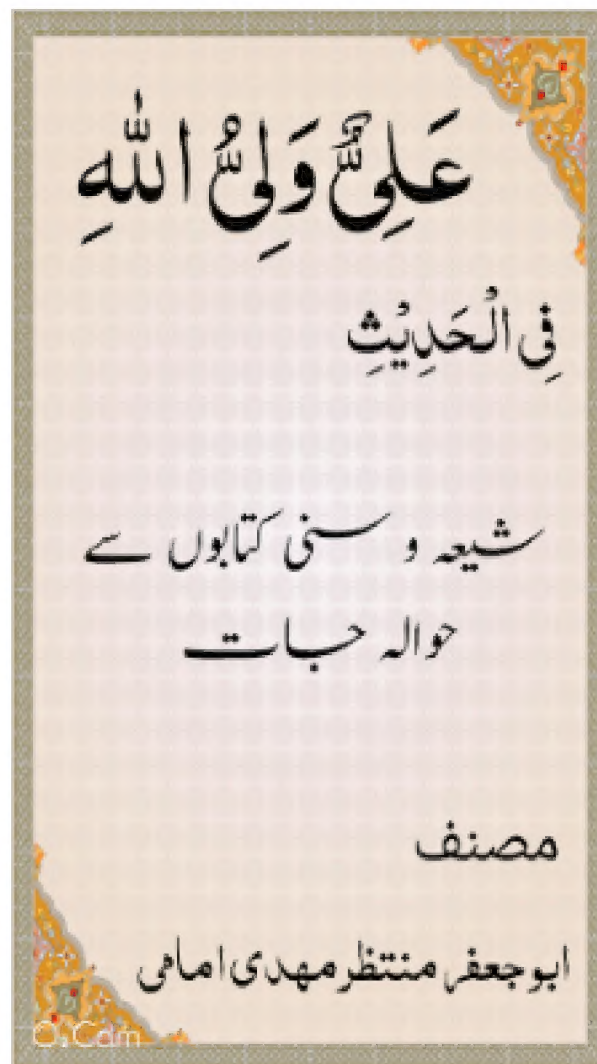 عَلِیٌّ وَلِیُّ اللهِ
فِی الْحَدِیْثِ
شیعہ و سنی کتابوں سے
حوالہ جات
مصنف
ابوجعفر منتظر مهدی امامی
O.Cam